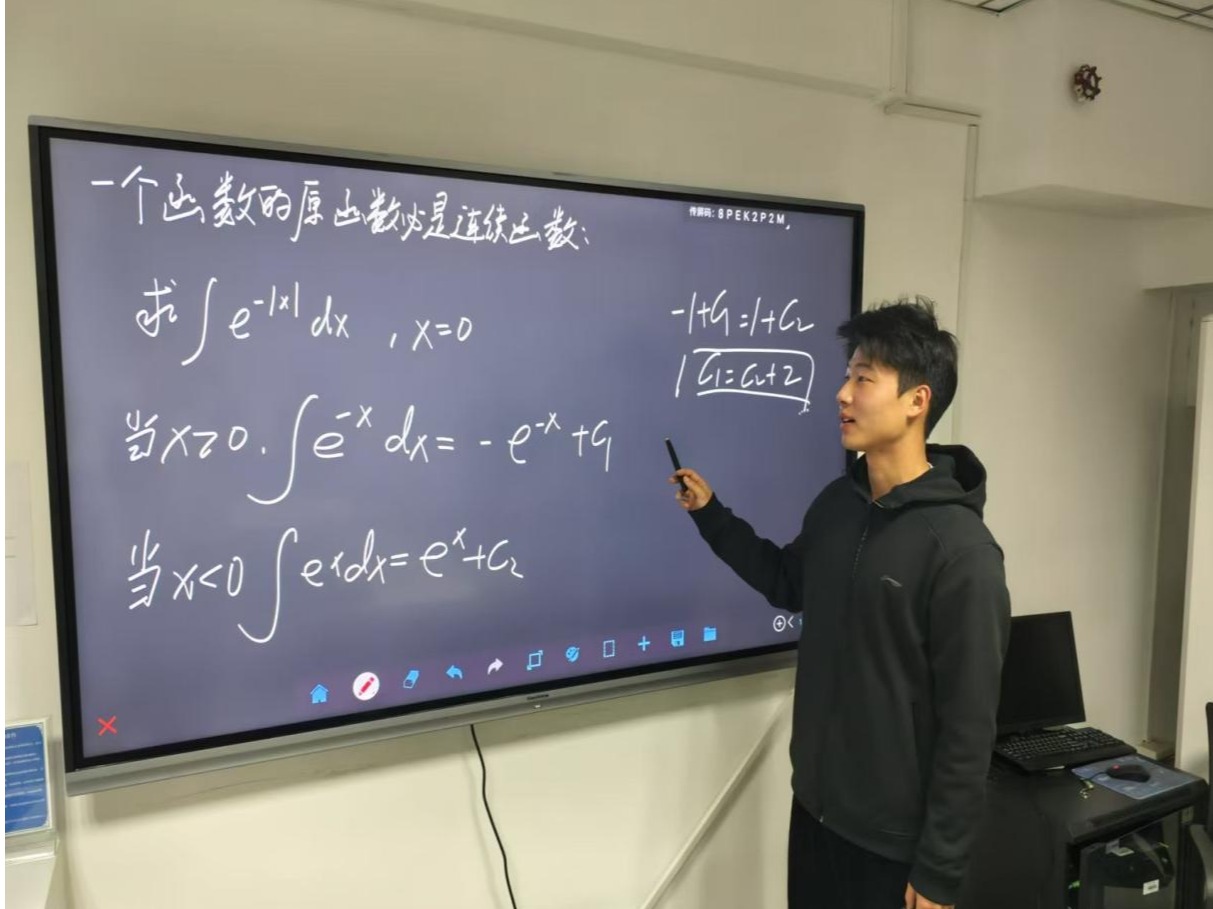 一个函数的原函数必是连续函数:
传屏码: 8PEK2P2M
求∫e^{-|x|}dx , x=0
-1+C₁=1+C₂
C₁=C₂+2
当x≥0. ∫e^{-x}dx= -e^{-x}+C₁
当x<0 ∫e^{x}dx=e^{x}+C₂